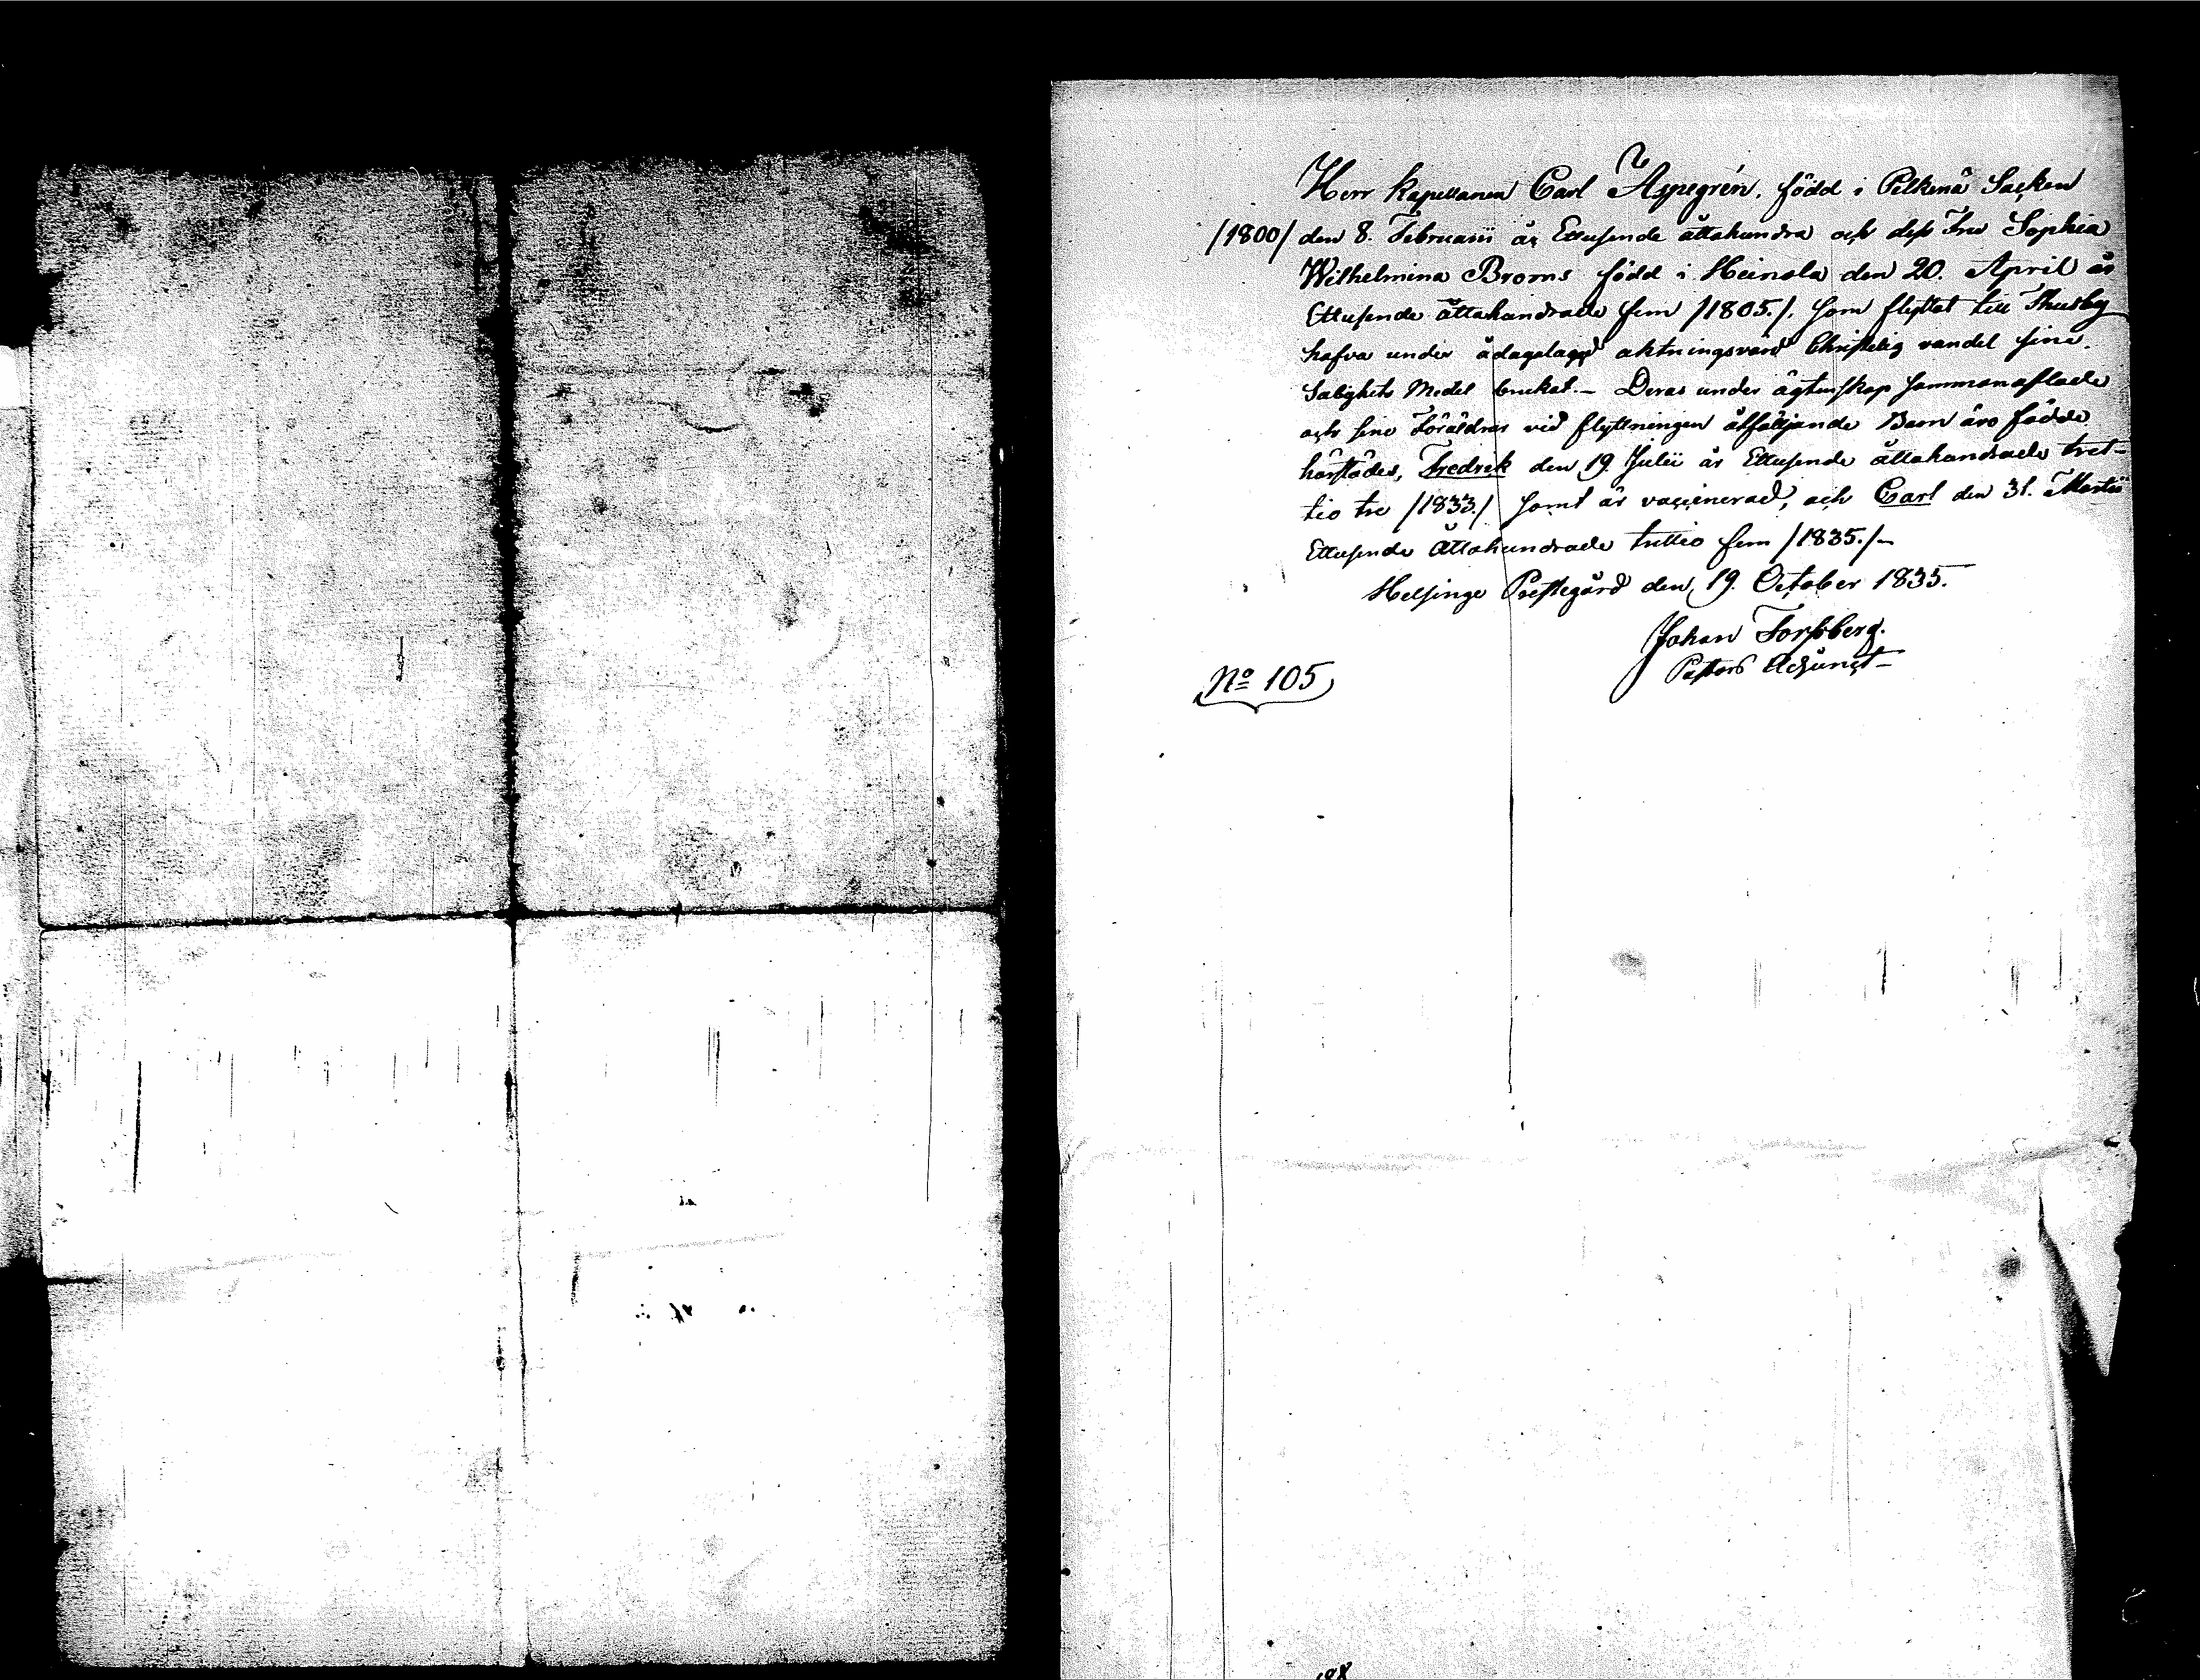 Herr Kapellanen Carl Aspegrén, född i Pelkenä Socken
/1800/ den 8. Februarii år Ettusende åttahundra och dess Fru Sophia
Wilhelmina Broms född i Heinola den 20. April år
Ettusende åttahundrade fem /1805./, som flyttat till Thusby
hafva under ådagalagd aktningsvärd Christelig vandel sine
Salighets Medel brukat. – Deras under ägtenskap sammanaflade
och sine Föräldrar vid flyttningen åtföljande Barn äro födde
härstädes, Fredrek den 19 Julii år Ettusende åttahundrade tret-
tio tre /1833./ samt är vaccinerad, och Carl den 31. Martii
Ettusende åttahundrade trettio fem /1835./–
Helsinge Prestegård den 19. October 1835.
Johan Forssberg.
Pastors Adjunct–
No 105